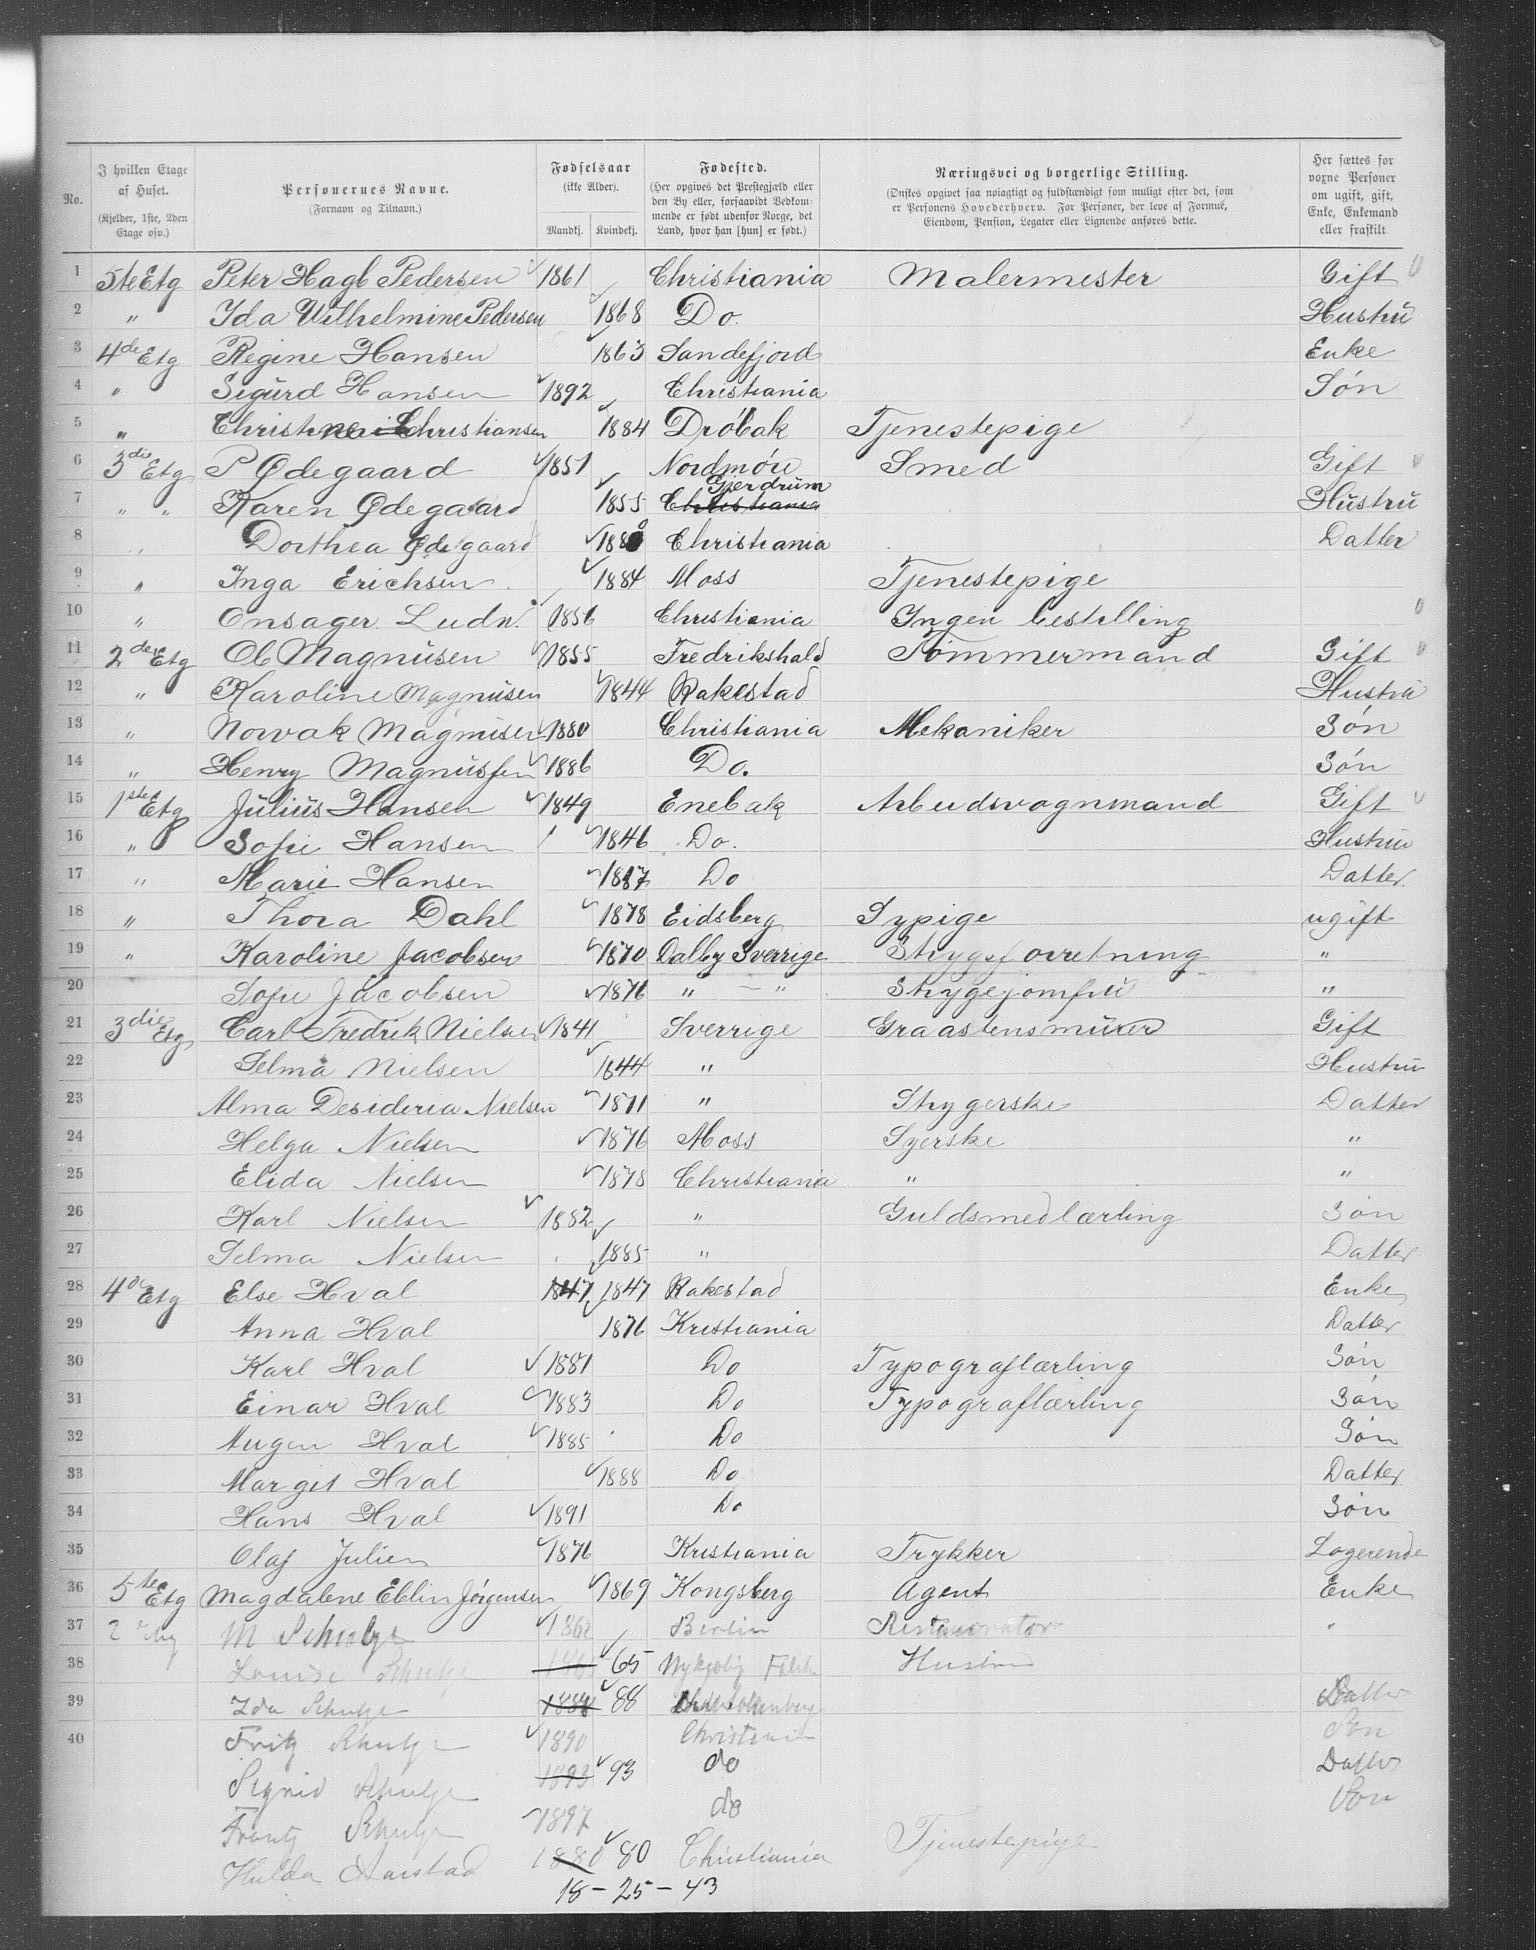 No.
I hvilken Etage af Huset. (Kjelder, 1ste, 2den Etage osv.)
Personernes Navne. (Fornavn og Tilnavn.)
Fødselsaar (ikke Alder). Mandkj. Kvindekj.
Fødested. (Her opgives det Prestegjæld eller den By eller, forsaavidt Vedkommende er født udenfor Norge, det Land, hvor han [hun] er født.)
Næringsvei og borgerlige Stilling. (Ønskes opgivet saa nøiagtigt og fuldstændigt som muligt efter det, som er Personens Hovederhverv. For Personer, der leve af Formue, Eiendom, Pension, Legater eller Lignende anføres dette.)
Her sættes for voxne Personer om ugift, gift, Enke, Enkemand eller fraskilt.
1 5te Etg Peter Hagb Pedersen 1861 Christiania Malermester Gift
2 " Ida Wilhelmine Pedersen 1868 Do. Hustrü
3 4de Etg Regine Hansen 1863 Sandefjord Enke
4 " Sigürd Hansen 1892 Christiania Søn
5 " Christine Christiansen 1884 Dröbak Tjenestepige
6 3die Etg P Ødegaard 1851 Nordmøre Smed Gift
7 " " Karen Ødegaard 1855 Christiania Gjerdrüm Hüstrü
8 " Dorthea Ødegaard 1880 Christiania Datter
9 " Inga Erichsen 1884 Moss Tjenestepige
10 " Onsager Ludv. 1856 Christiania Ingen bestilling
11 2den Etg Ol Magnüsen 1855 Fredrikshald Tömmermand Gift
12 " Karoline Magnüsen 1844 Rakestad Hustrü
13 " Nowak Magnüsen 1880 Christiania Mekaniker Søn
14 " Henry Magnüssen 1886 Do. Søn
15 1ste Etg Jülius Hansen 1849 Enebak Arbeidsvognmand Gift
16 " Sofie Hansen 1846 Do. Hustrü
17 " Marie Hansen 1887 Do Datter
18 " Thora Dahl 1878 Eidsberg Sypige ugift
19 " Karoline Jacobsen 1870 Dalby Sverrige Strygeforretning "
20 Sofie Jacobsen 1876 " — " Strygejomfrü "
21 3die Etg Carl Fredrik Nielsen 1841 Sverrige Graastensmürer Gift
22 Selma Nielsen 1844 " Hustru
23 Alma Desideria Nielsen 1871 " Strygerske Datter
24 Helga Nielsen 1876 Moss Syerske "
25 Elida Nielsen 1878 Christiania " "
26 Karl Nielsen 1882 " Guldsmedlærling Søn
27 Selma Nielsen 1885 " Datter
28 4de Etg Else Hval 1847 1847 Rakestad Enke
29 Anna Hval 1876 Kristiania Datter
30 Karl Hval 1881 Do Typograflærling Søn
31 Einar Hval 1883 Do Typograflærling Søn
32 Augen Hval 1885 Do Søn
33 Margit Hval 1888 Do Datter
34 Hans Hval 1891 Do Søn
35 Olaf Julien 1876 Kristiania Trykker Logerende
36 5te Etg Magdalene Eblin Jørgensen 1869 Kongsberg Agent Enke
37 2 M Schulze 1862 Berlin Restaurator "
38 Louise Schulze 65 Nykjøbig Falst Hustru
39 Ida Schulze 1888 88 Datter
40 Fritz Schulze 1890 Christiania Søn
Sigrid Schulze 1893 93 do Datter
Frantz Schulze 1897 do Søn
Hulda Aarstad 1880 80 Christiania Tjenestepige
18 - 25 - 43